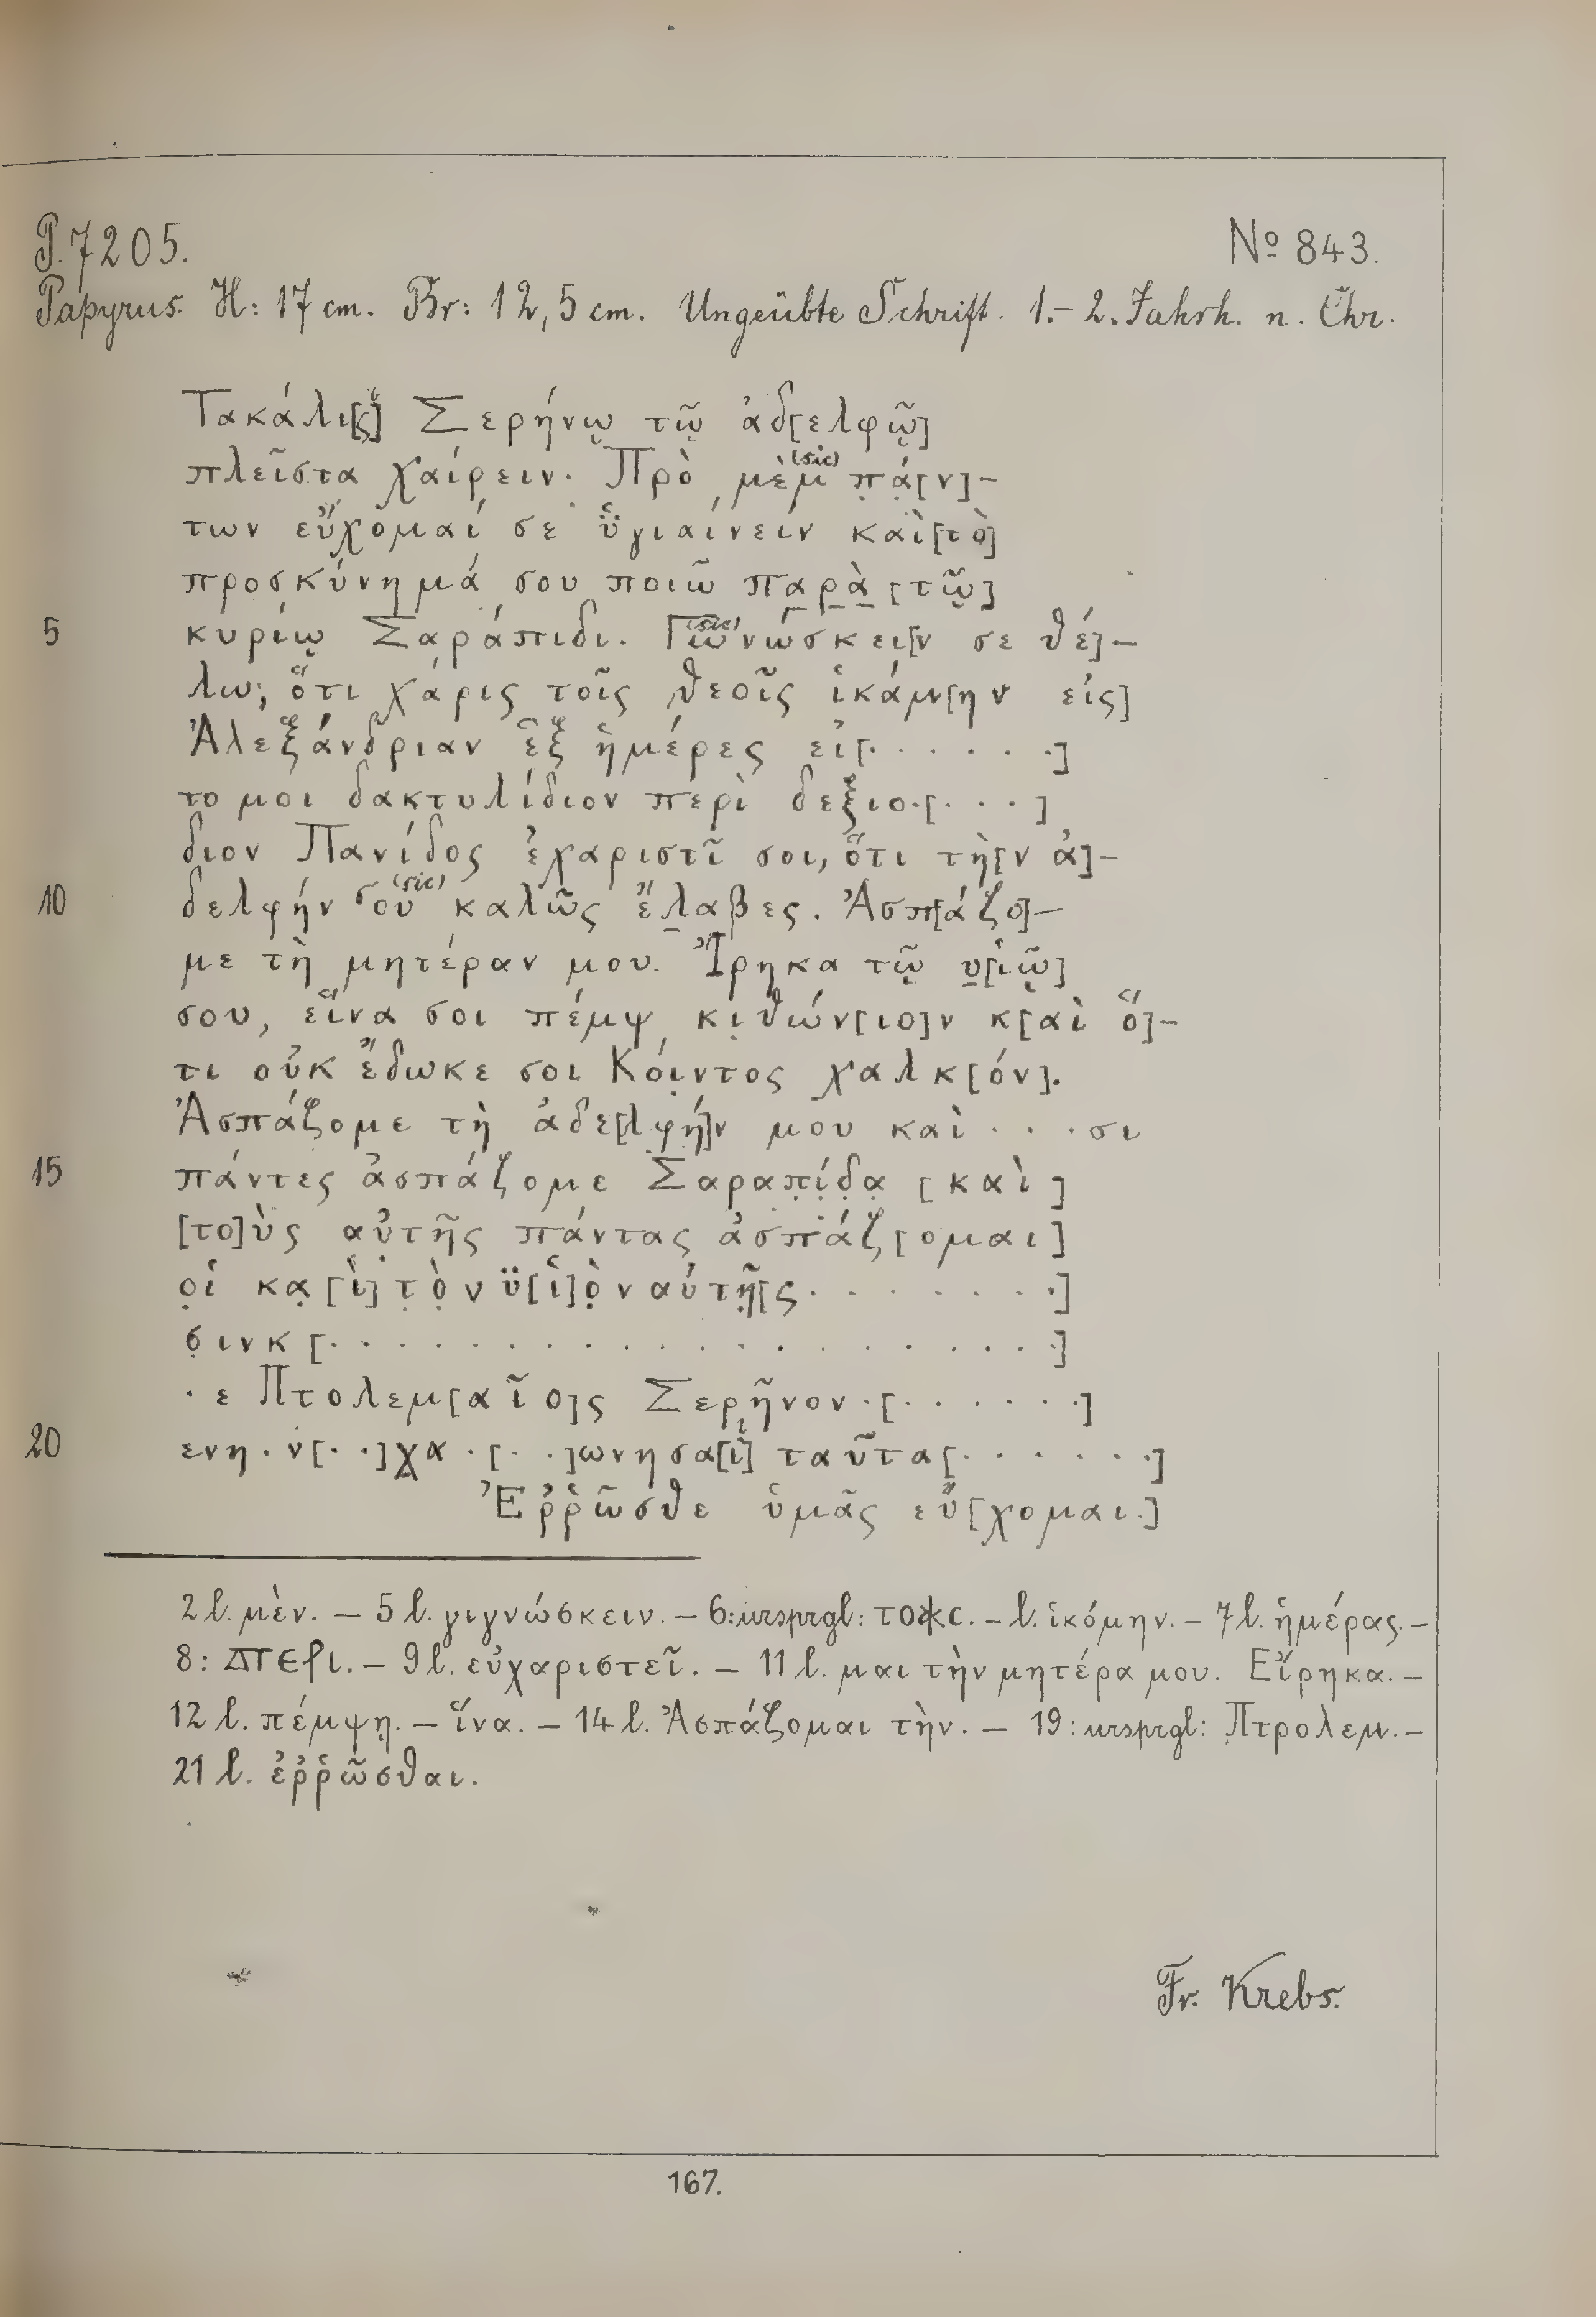 P. 7205. No 843.
Papyrus. H: 17 cm. Br: 12,5 cm. Ungeübte Schrift. 1.- 2. Jahrh. n. Chr.
Τακάλι[ς] Σερήνῳ τῷ ἀδ[ελφῷ]
πλεῖστα χαίρειν. Πρὸ μὲμ (sic) π̣ά̣[ν]-
των εὔχομαί σε ὕγιαίνειν καὶ [τὸ]
προσκύνημά σου ποιῶ πα̣ρ̣ὰ̣ [τῷ]
5 κυρίῳ Σαράπιδι. Γωνώσκει[ν (sic) σε θέ]-
λω, ὅτι χάρις τοῖς θεοῖς ἱκάμ[ην εἰς]
Ἀλεξάνδριαν ἓξ ἡμέρες εἰ[· · · · · ·]
το μοι δακτυλίδιον περὶ δεξιο·[· · · ]
διον Πανίδος ἐχαριστῖ σοι, ὅτι τὴ[ν ἀ]-
10 δελφήν σοῦ (sic) καλῶς ἔλ̣αβες. Ἀσπ[άζο]-
με τὴ μητέραν μου. Ἴρηκα τῷ υ̣[ἱῷ]
σου, εἵνα σοι πέμψ κι̣θών[ιο]ν κ[αὶ ὅ]-
τι οὐκ ἔδωκε σοι Κόι̣ντος χαλκ[όν].
Ἀσπάζομε τὴ ἀδε[λφή]ν μου καὶ · · · σι
15 πάντες ἀσπάζομε Σαραπ̣ί̣δ̣α̣ [καὶ ]
[το]ὺς αὐτῆς πάντας ἀσπάζ[ομαι]
ο̣ἱ κα̣[ὶ] τ̣ὸ̣ν ϋ[ἱ]ὸ̣ν αὐτῆ̣[ς · · · · · · · ·]
σ̣ινκ[· · · · · · · · · · · · · · · · · · · ·]
· ε Πτολεμ[αῖο]ς Σερῆνον ·[· · · · · ·]
20 ενη · ν[· ·]χα · [· ·]ωνησα[ι] ταῦτα[· · · · · ·]
Ἐῤῥῶσθε ὑμᾶς εὔ[χομαι.]
2 l. μὲν. — 5 l. γιγνώσκειν. — 6: ursprgl: — l. ἱκόμην. — 7 l. ἡμέρας. —
8: — 9 l. εὐχαριστεῖ. — 11 l. μαι τὴν μητέρα μου. Εἴρηκα. —
12 l. πέμψῃ. — ἵνα. — 14 l. Ἀσπάζομαι τὴν. — 19: ursprgl: Πτρολεμ. —
21 l. ἐῤῥῶσθαι.
Fr. Krebs.
167.